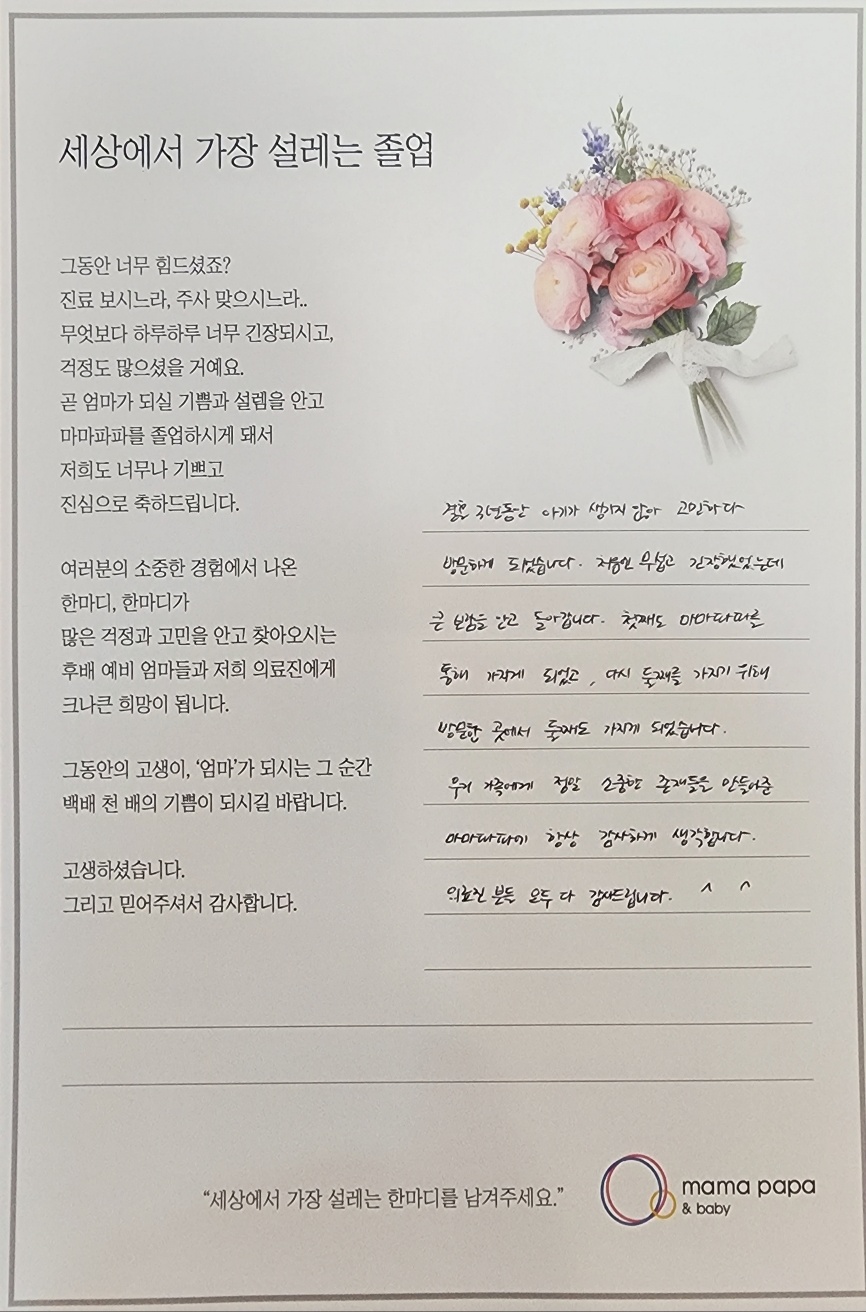 세상에서 가장 설레는 졸업
그동안 너무 힘드셨죠?
진료 보시느라, 주사 맞으시느라..
무엇보다 하루하루 너무 긴장되시고,
걱정도 많으셨을 거예요.
곧 엄마가 되실 기쁨과 설렘을 안고
마마파파를 졸업하시게 돼서
저희도 너무나 기쁘고
진심으로 축하드립니다.
여러분의 소중한 경험에서 나온
한마디, 한마디가
많은 걱정과 고민을 안고 찾아오시는
후배 예비 엄마들과 저희 의료진에게
크나큰 희망이 됩니다.
그동안의 고생이, ‘엄마’가 되시는 그 순간
백배 천 배의 기쁨이 되시길 바랍니다.
고생하셨습니다.
그리고 믿어주셔서 감사합니다.
결혼 동안 아기가 생기지 않아 고민하다
방문하게 되었습니다. 처음엔 무섭고 긴장했었는데
큰 보람을 안고 돌아갑니다. 첫째도 마마파파를
통해 가지게 되었고, 다시 둘째를 가지기 위해
방문한 곳에서 둘째도 가지게 되었습니다.
우리 가족에게 정말 소중한 존재들을 만들어준
마마파파에 항상 감사하게 생각합니다.
의료진 분들 모두 다 감사드립니다. ^ ^
“세상에서 가장 설레는 한마디를 남겨주세요.”
mama papa
& baby